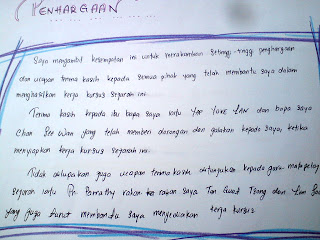 PENHARGAAN
Saya mengambil kesempatan ini untuk merakamkan setinggi-tinggi penghargaan
dan ucapan terima kasih kepada semua pihak yang telah membantu saya dalam
menghasilkan kerja kursus sejarah ini.
Terima kasih kepada ibu bapa saya iaitu Yap Yoke Lan dan bapa saya
Chan See Wan yang telah memberi dorongan dan galakan kepada saya, ketika
menyiapkan kerja kursus sejarah ini.
Tidak dilupakan juga ucapan terima kasih ditujukan kepada guru matapelajaran
sejarah iaitu Pn. rakan-rakan saya Tan Tsang dan Lim
yang juga turut membantu saya menyediakan kerja kursus